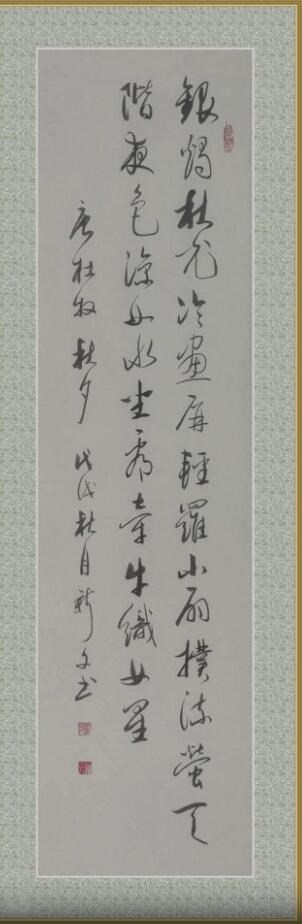 銀燭秋光冷畫屏輕羅小扇撲流螢天
階夜色涼如水坐看牽牛織女星
唐杜牧秋夕 戊戌秋月新文书